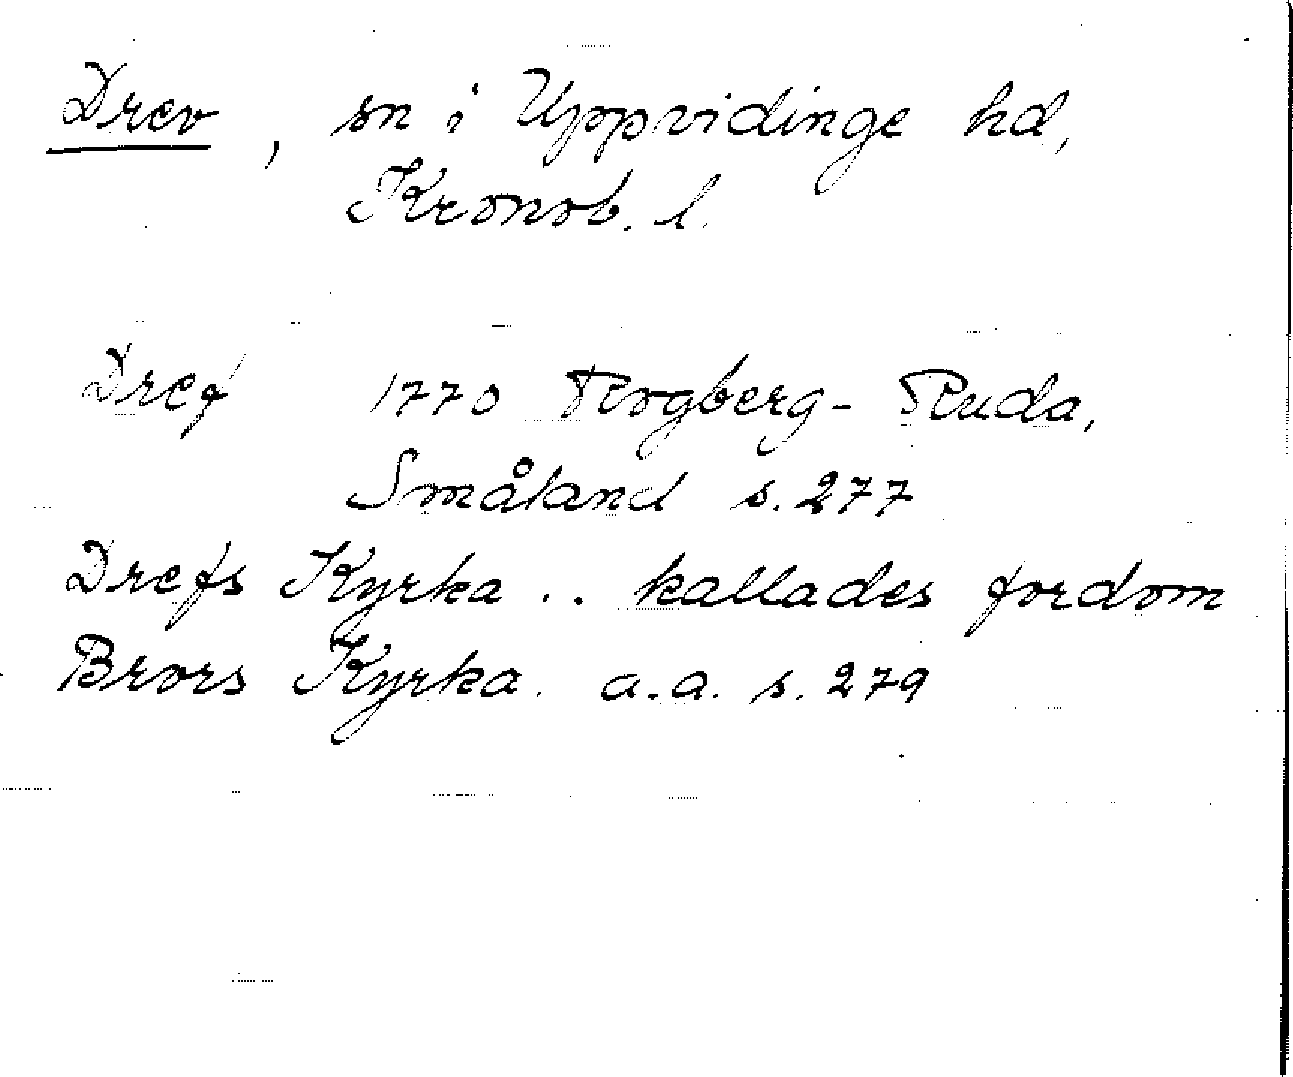 Drev, sn i Uppvidinge hd,
Kronob. l.
Dref 1770 Rogberg-Ruda,
Småland s. 277
Drefs Kyrka .. kallades fordom
Brors Kyrka. a.a. s. 279